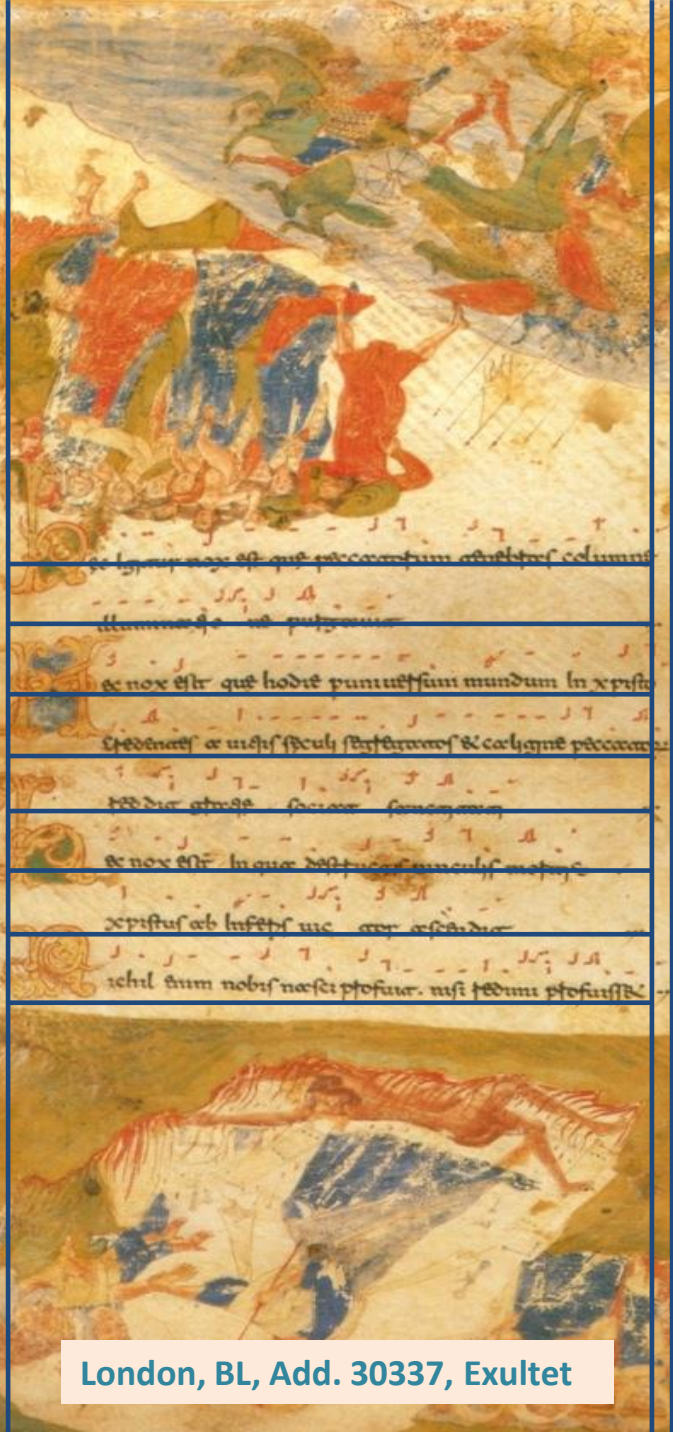 ec igitur nox est que peccatorum tenebras columne
illuminatio ne purgauit
ec nox est que hodie per uniuersum mundum In xpisto
Credentes a uitiis seculi segregatos & caligine
reddit gratiae sociat sanctitati
ec nox est In qua destructis uinculis mortis
xpistus ab Inferis uic tor ascendit
Nichil enim nobis nasci profuit. nisi redimi profuisset
London, BL, Add. 30337, Exultet